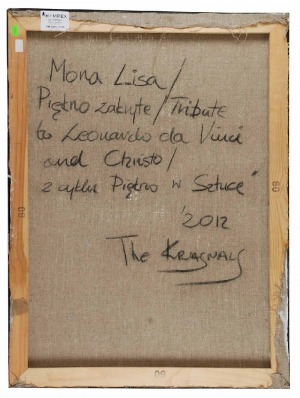 Mona Lisa/
Piękno zakryte/Tribute
to Leonardo da Vinci
and Christo/
z cyklu Piękno w Sztuce"
'2012
The Krasnals